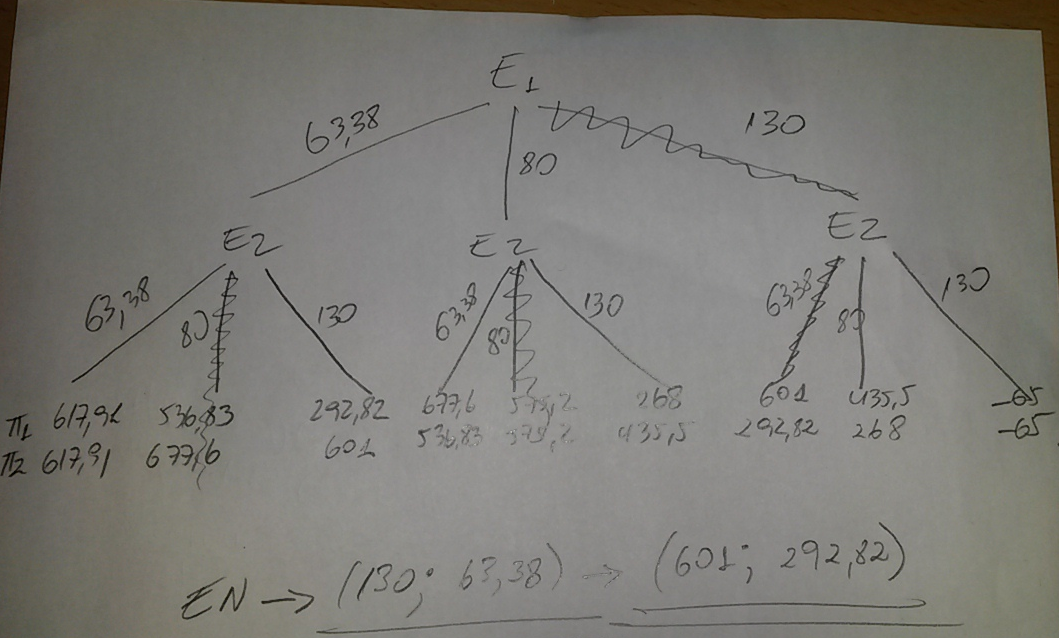 E1
63,38 80 130
E2 E2 E2
63,38 80 130 63,38 80 130 63,38 80 130
π1 617,91 536,83 292,82 677,6 575,2 268 601 435,5 -65
π2 617,91 677,6 601 536,83 575,2 435,5 292,82 268 -65
EN → (130; 63,38) → (601; 292,82)